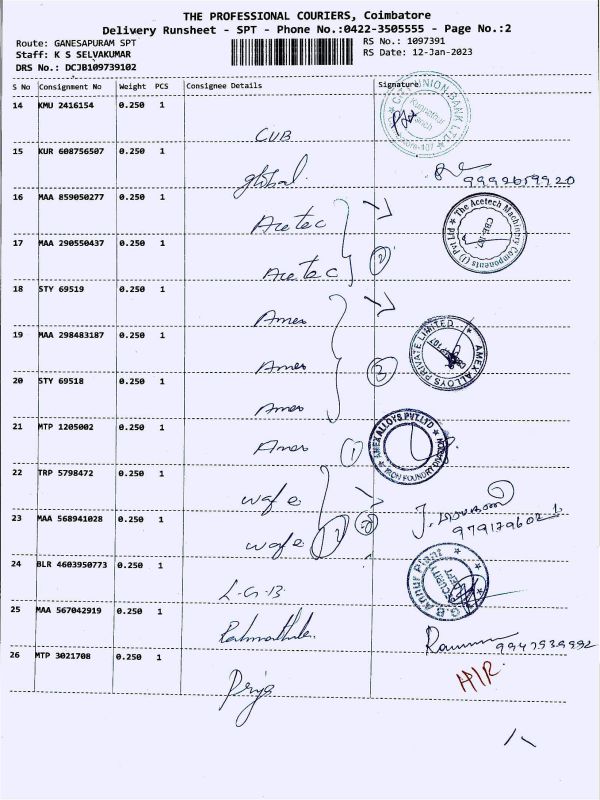 THE PROFESSIONAL COURIERS, Coimbatore
Delivery Runsheet - SPT - Phone No.:0422-3505555 - Page No.:2
Route: GANESAPURAM SPT
Staff: K S SELVAKUMAR
DRS No.: DCJB109739102
RS No.: 1097391
RS Date: 12-Jan-2023
S No Consignment No Weight PCS Consignee Details Signature
14 KMU 2416154 0.250 1
CUB
UNION BANK LTD
15 KUR 608756507 0.250 1
global
9992659920
16 MAA 859050277 0.250 1
Acetec
The Acetech Machinery Components (I) Pvt Ltd
17 MAA 290550437 0.250 1
Acetec
2
18 STY 69519 0.250 1
Amex
19 MAA 298483187 0.250 1
Amex
3
AMEX ALLOYS PRIVATE LIMITED
20 STY 69518 0.250 1
Amex
21 MTP 1205002 0.250 1
Amex
1
AMEX ALLOYS PVT LTD
IRON FOUNDRY DIVISION
22 TRP 5798472 0.250 1
wafe
23 MAA 568941028 0.250 1
wafe
24 BLR 4603950773 0.250 1
L.G.B
Annur Plant
SECURITY
DEPT
25 MAA 567042919 0.250 1
9947939992
26 MTP 3021708 0.250 1
Priya